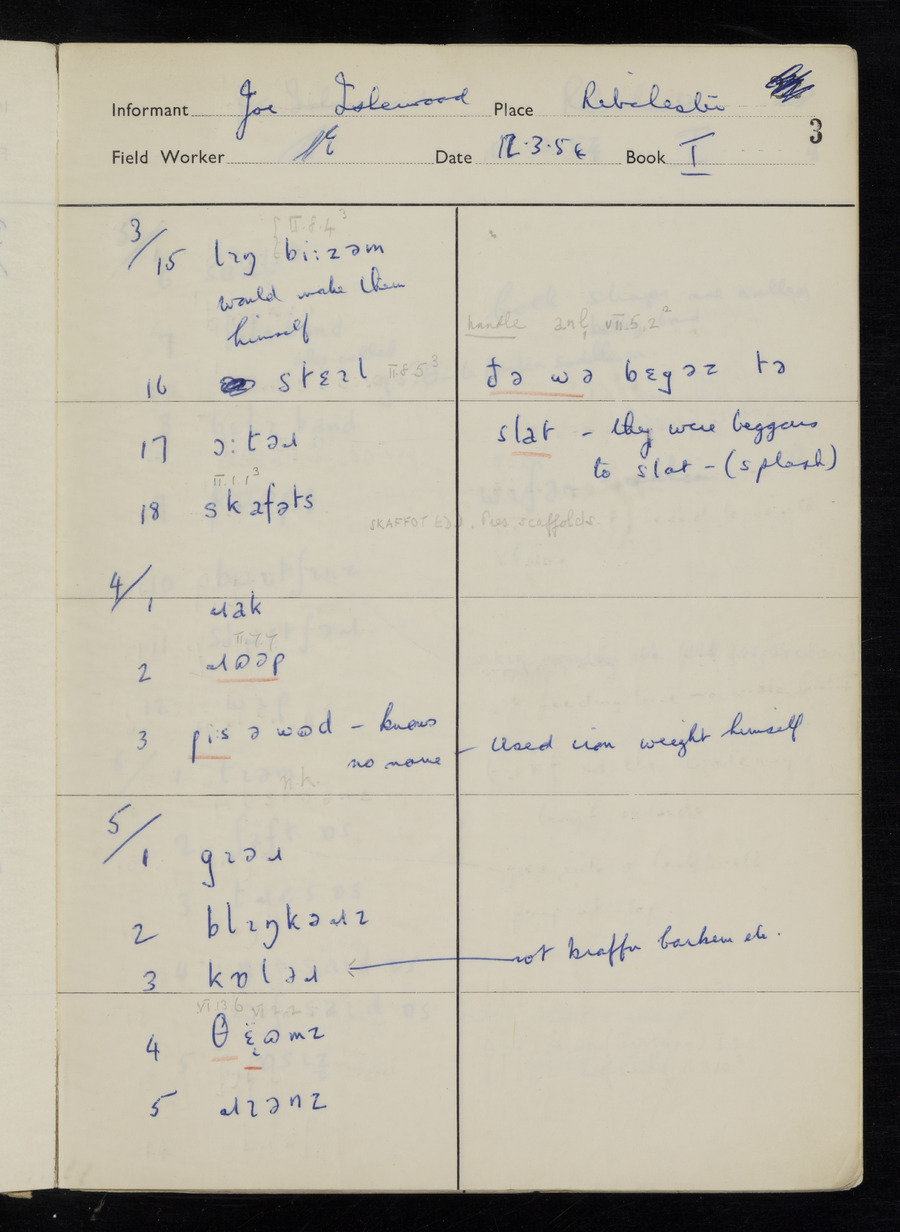 Informant Joe Place Ribchester
3
Field Worker Date 12·3·54 Book I
II.8.4³
3/15 lɪŋ biːzəm
would make them
himself
handle VII.5.2²
16 stɛɪl II.8.5³ ðə ɷə bɛgəz tə
17 ɔːtəɹ slat – they were beggars
to slat – (splash)
II.1.1³
18 skafəts
SKAFFOT scaffolds
4/1 ɹak
II.7.7
2 ɹɷəp
3 pɪs ə wɷd – knows
no name – used iron weight himself
n.k.
5/1 gɪəɹ
2 blɪŋkəɹz
3 kɒləɹ ← not braffin barken etc.
VI.13.6 VI.2.2
4 θɛ̈ɷmz
5 ɹɪənz